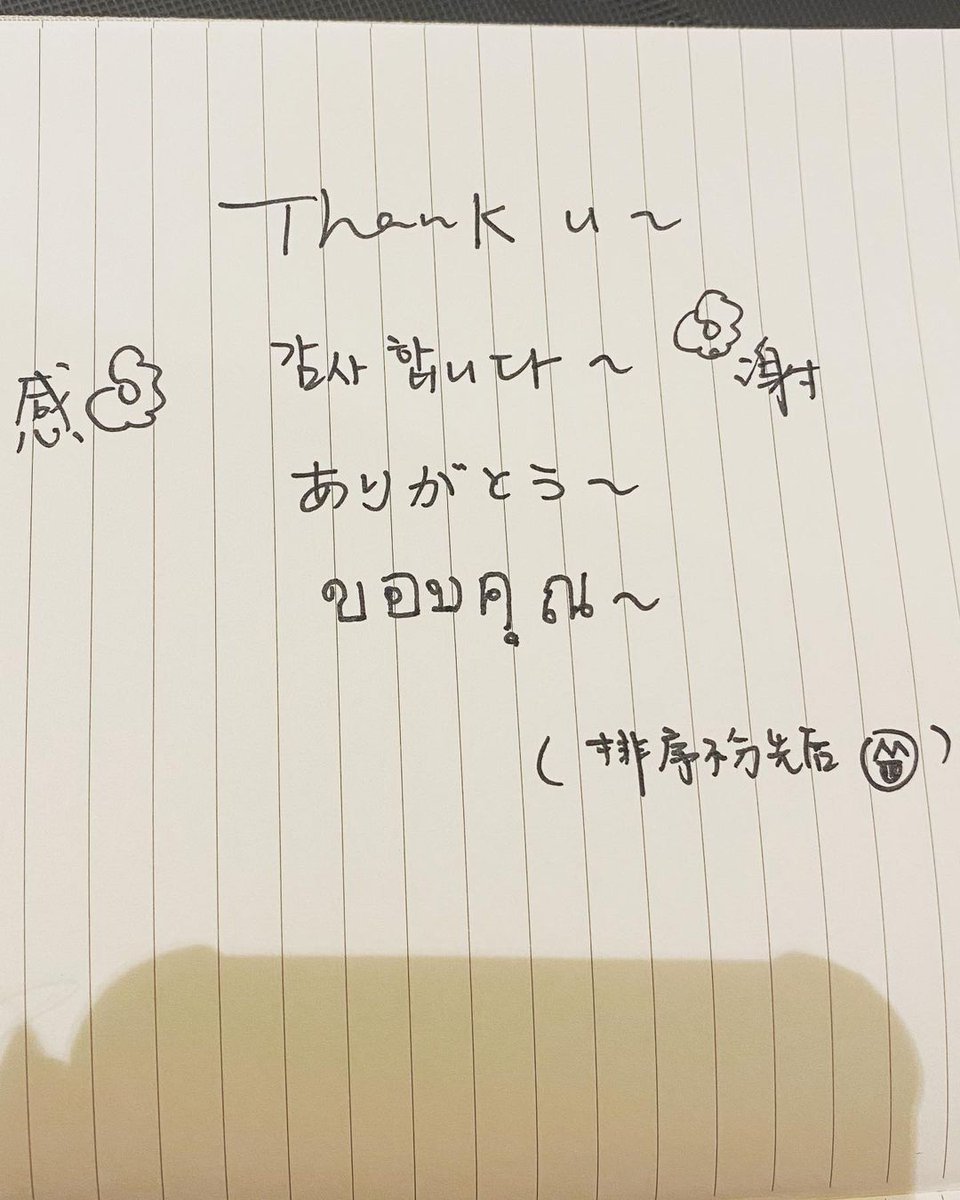 Thank u~
감사합니다~
感 謝
ありがとう~
ขอบคุณ~
(排序不分先后)